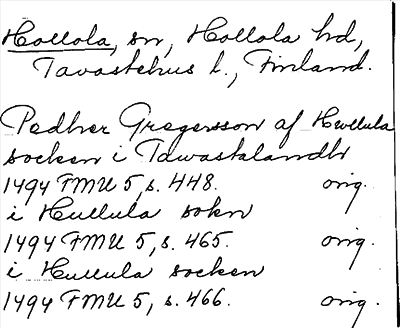 Hollola, sn, Hollola hd,
Tavastehus l., Finland.
Pedher Gregersson af Hwllula
socken i Tawastalandh
1494 FMU 5, s. 448. orig.
i Hullula sokn
1494 FMU 5, s. 465. orig.
i Hullula socken
1494 FMU 5, s. 466. orig.